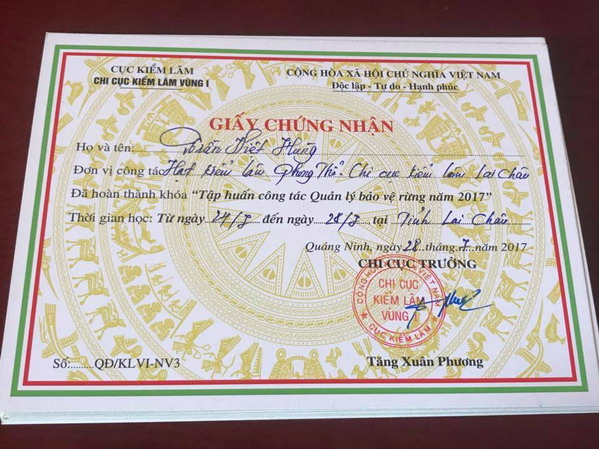 CỤC KIỂM LÂM
CHI CỤC KIỂM LÂM VÙNG I
CỘNG HÒA XÃ HỘI CHỦ NGHĨA VIỆT NAM
Độc lập - Tự do - Hạnh phúc
GIẤY CHỨNG NHẬN
Họ và tên: Trần Việt Hưng
Đơn vị công tác: Hạt kiểm lâm Phong Thổ - Chi cục kiểm lâm Lai Châu
Đã hoàn thành khóa “Tập huấn công tác Quản lý bảo vệ rừng năm 2017”
Thời gian học: Từ ngày 27/7 đến ngày 28/7 tại Tỉnh Lai Châu
Quảng Ninh, ngày 28 tháng 7 năm 2017
CHI CỤC TRƯỞNG
CHI CỤC
KIỂM LÂM
VÙNG I
CỤC KIỂM LÂM
Số:.........QĐ/KLVI-NV3
Tăng Xuân Phương